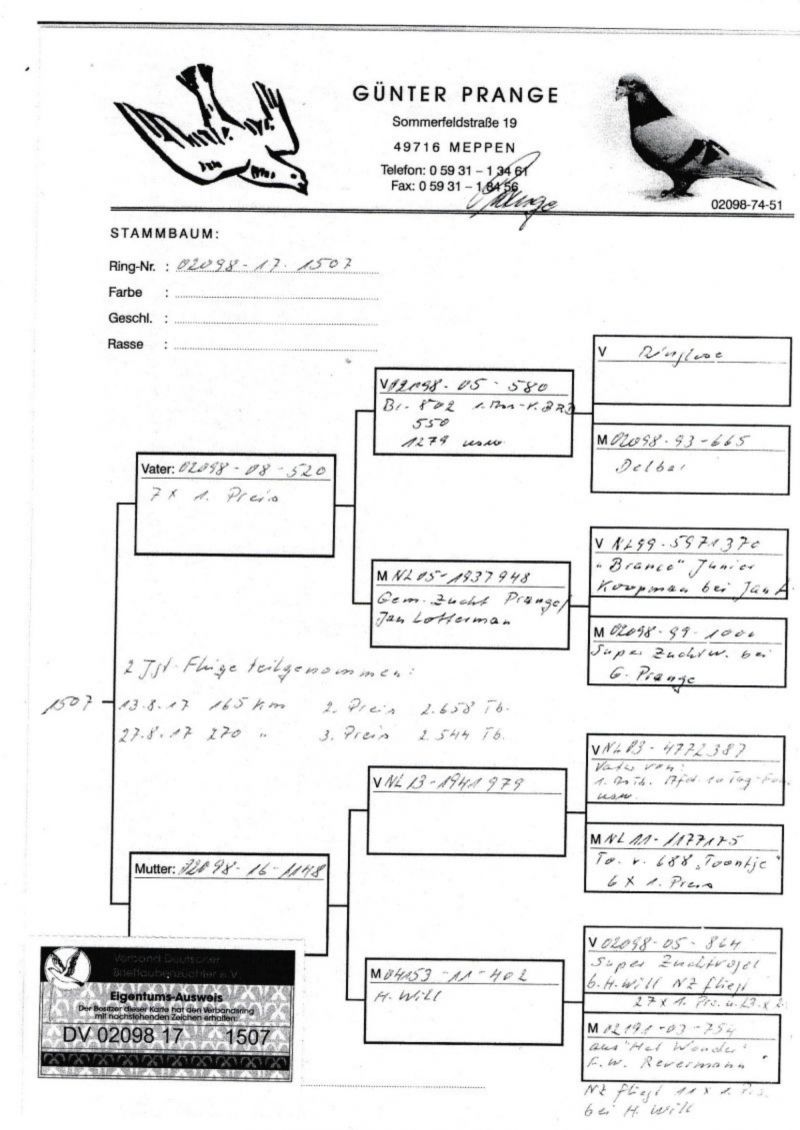 GÜNTER PRANGE
Sommerfeldstraße 19
49716 MEPPEN
Telefon: 0 59 31 – 1 34 61
Fax: 0 59 31 – 1 84 56
Prange
02098-74-51
STAMMBAUM:
Ring-Nr. : 02098-17-1507
Farbe :
Geschl. :
Rasse :
V Ringlose
M 02098-93-665
Delbar
V 02098-05-580
Br. 802 1.
550
1279 usw.
Vater: 02098-08-520
7 x 1. Preis
V NL99-5971370
"Branco" Junior
Koopman bei Jan
M NL05-1937948
Gem. Zucht Prange/
Jan Lotterman
M 02098-99-1000
Super Zuchtw. bei
G. Prange
1507
2 Jgt-Flüge teilgenommen:
13.8.17 165 Km 2. Preis 2.658 Tb.
27.8.17 270 " 3. Preis 2.544 Tb.
V NL03-4772387
Vater von:
usw.
V NL13-1941979
M NL11-1177175
To. v. 688 "Toontje"
6 x 1. Preis
Mutter: 02098-16-1148
V 02098-05-864
Super Zuchtvogel
b. H. Will NZ fliegt
27 x 1. Prs.
M 04153-11-402
H. Will
M 02191-03-754
aus
F.W. Revermann
NZ fliegt 11 x 1. Prs.
bei H. Will
Verband Deutscher
Brieftaubenzüchter e.V.
Eigentums-Ausweis
Der Besitzer dieser Karte hat den Verbandsring
mit nachstehenden Zeichen erhalten:
DV 02098 17 1507